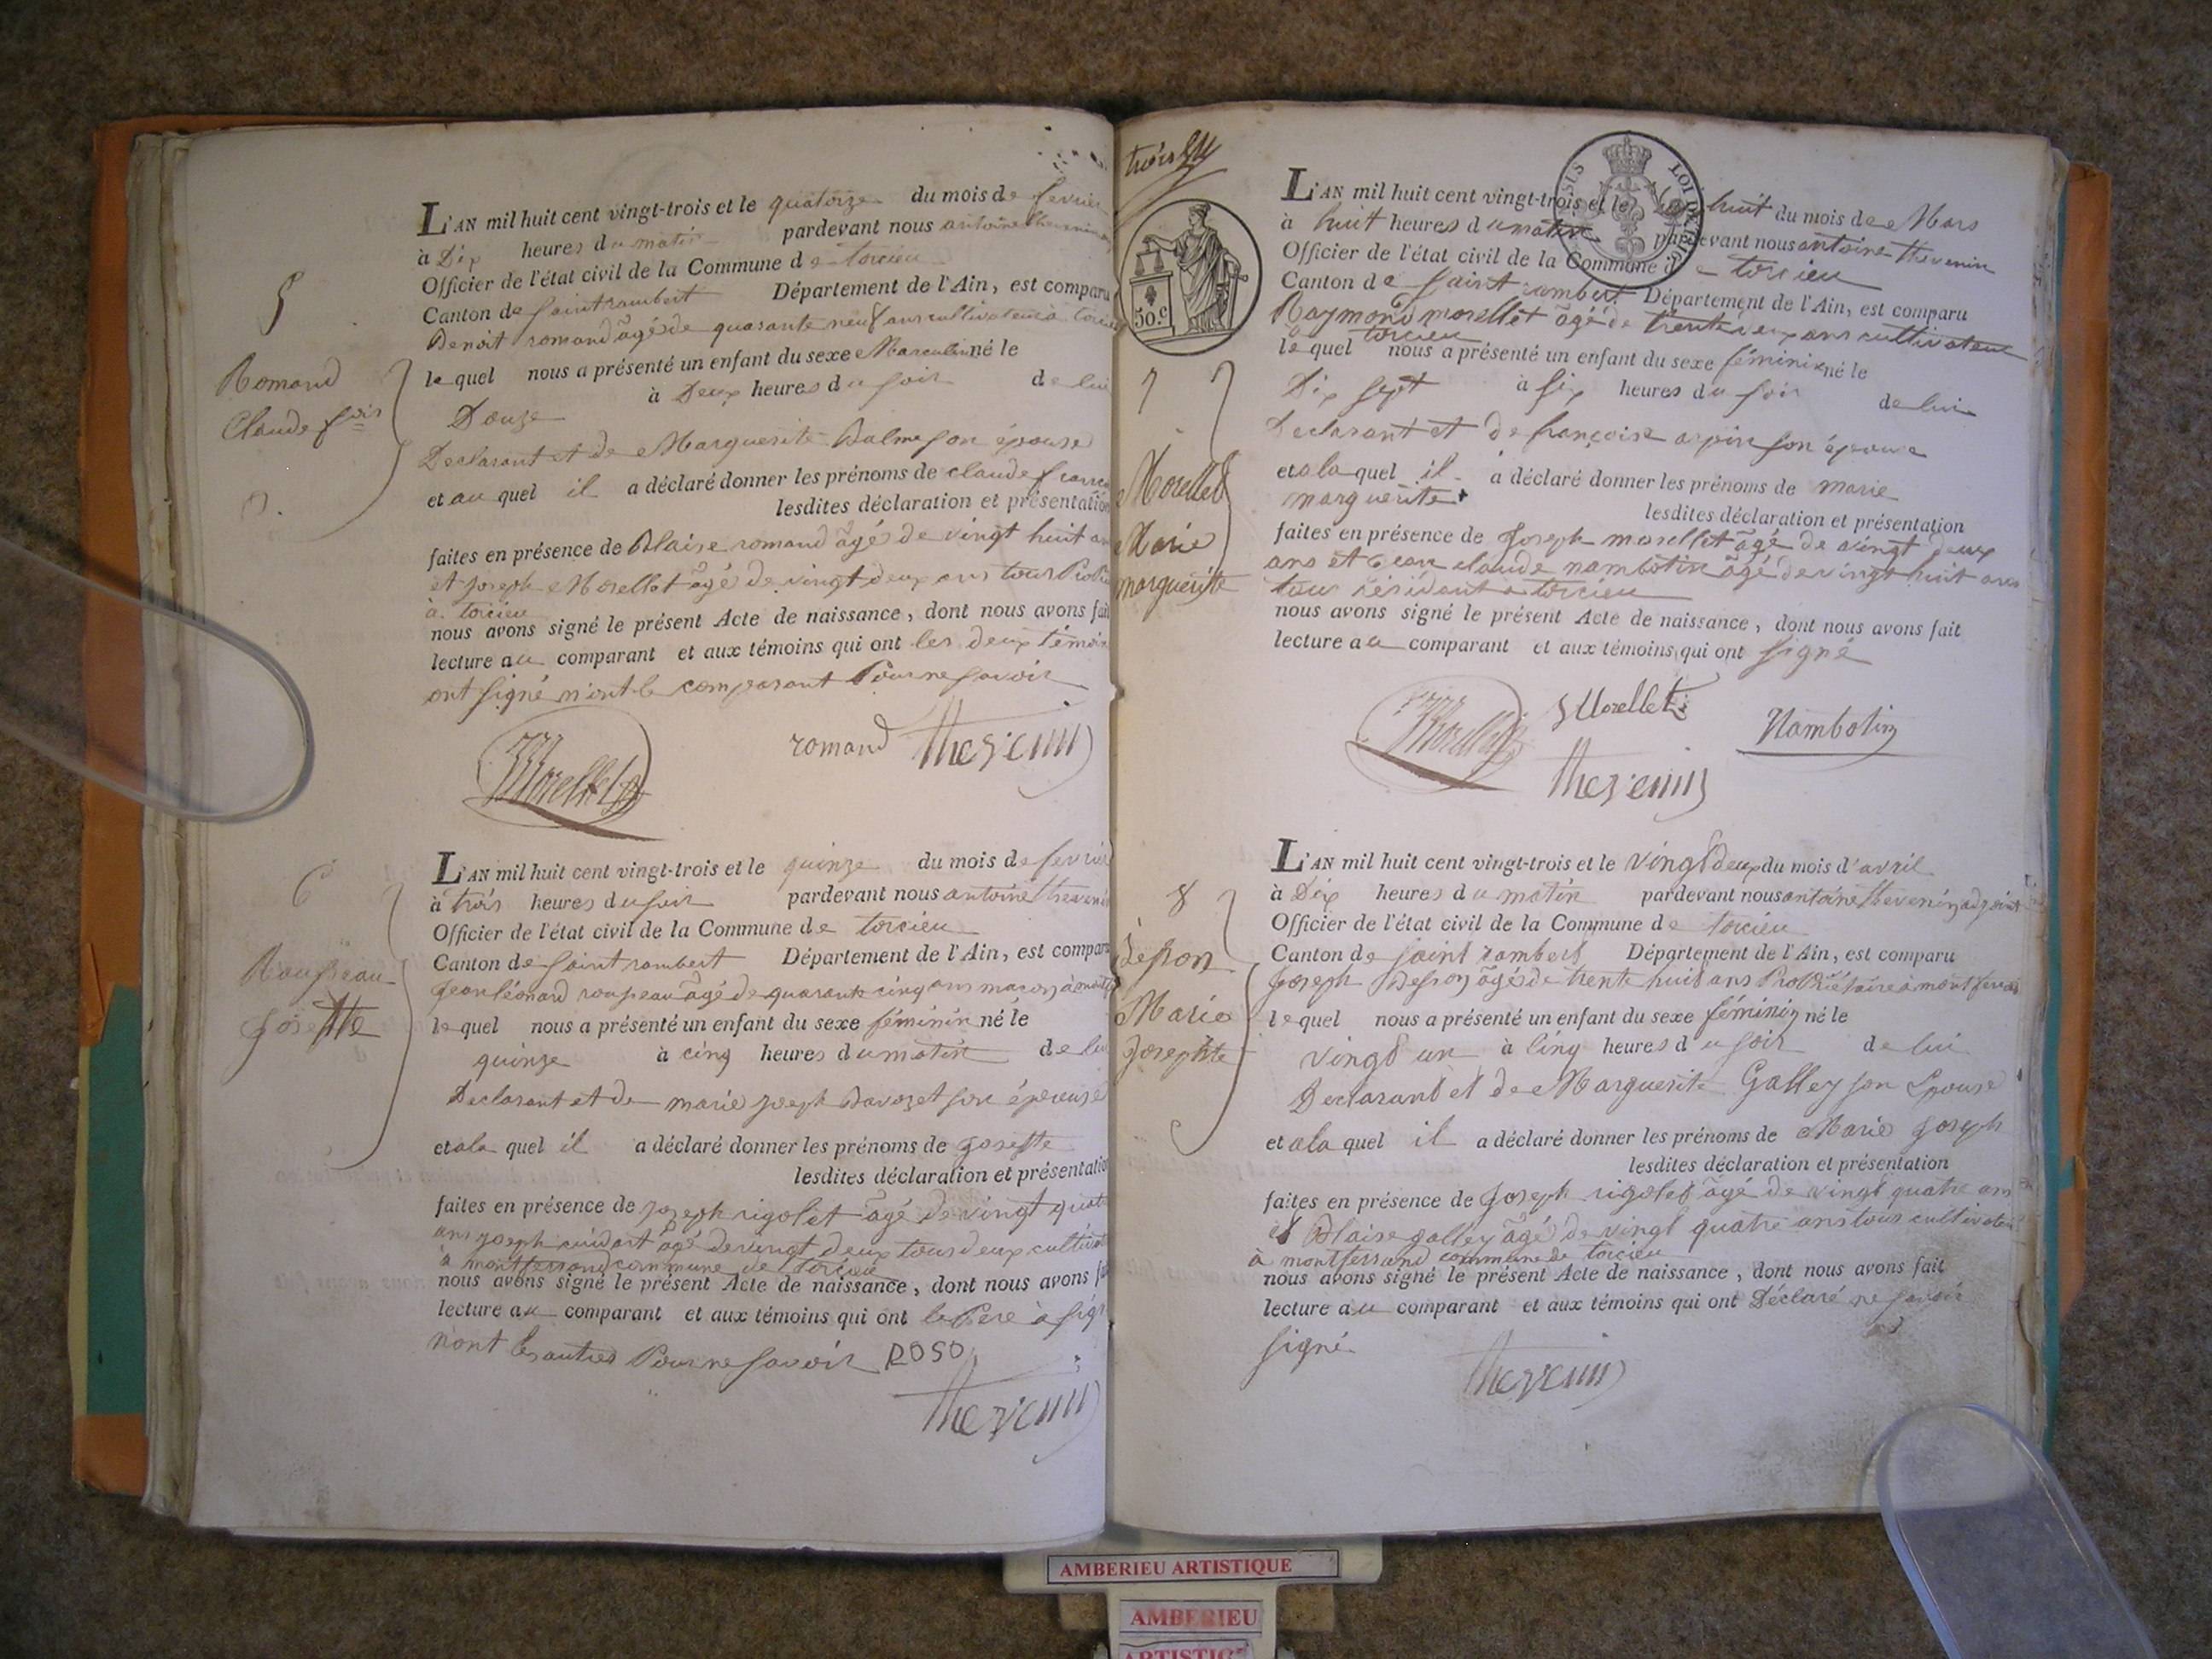 5
Romand
Claude fçois
L'AN mil huit cent vingt-trois et le quatorze du mois de fevrier
à Dix heures du matin pardevant nous antoine thevenin
Officier de l'état civil de la Commune de torcieu
Canton de saint rambert Département de l'Ain, est comparu
Benoit romand âgé de quarante neuf ans cultivateur à torcieu
lequel nous a présenté un enfant du sexe Masculin né le
Douze à Deux heures du soir de lui
Declarant et de Marguerite Balme son épouse
et au quel il a déclaré donner les prénoms de claude
lesdites déclaration et présentation
faites en présence de Blaise romand âgé de vingt huit ans
et joseph Morellet âgé de vingt deux ans tous
à torcieu
nous avons signé le présent Acte de naissance, dont nous avons fait
lecture au comparant et aux témoins qui ont les deux témoins
ont signé n'ont le comparant Pour ne savoir
Morellet romand thevenin
6
Rousseau
josette
L'AN mil huit cent vingt-trois et le quinze du mois de fevrier
à trois heures du soir pardevant nous antoine thevenin
Officier de l'état civil de la Commune de torcieu
Canton de saint rambert Département de l'Ain, est comparu
jean léonard rousseau âgé de quarante cinq ans maçon à
lequel nous a présenté un enfant du sexe féminin né le
quinze à cinq heures du matin de lui
Declarant et de marie joseph son épouse
et a la quel il a déclaré donner les prénoms de josette
lesdites déclaration et présentation
faites en présence de joseph rigolet âgé de vingt quatre
ans joseph âgé de vingt deux tous deux
à montferrand commune de torcieu
nous avons signé le présent Acte de naissance, dont nous avons fait
lecture au comparant et aux témoins qui ont le Pere à signé
n'ont les autres Pour ne savoir ROSO
thevenin
trois
50.c
LOI DE
7
Morellet
Marie
marguerite
L'AN mil huit cent vingt-trois et le dix huit du mois de Mars
à huit heures du matin pardevant nous antoine thevenin
Officier de l'état civil de la Commune de torcieu
Canton de saint rambert Département de l'Ain, est comparu
Raymond morellet âgé de trente deux ans cultivateur
torcieu
lequel nous a présenté un enfant du sexe féminin né le
Dix sept à six heures du soir de lui
Declarant et de françoise arpin son épouse
et a la quel il a déclaré donner les prénoms de marie
marguerite
lesdites déclaration et présentation
faites en présence de joseph morellet âgé de vingt deux
ans et jean claude nambotin âgé de vingt huit ans
tous résidant a torcieu
nous avons signé le présent Acte de naissance, dont nous avons fait
lecture au comparant et aux témoins qui ont signé
Morellet Morellet Nambotin
thevenin
8
Marie
josephte
L'AN mil huit cent vingt-trois et le vingt deux du mois d'avril
à Dix heures du matin pardevant nous antoine thevenin adjoint
Officier de l'état civil de la Commune de torcieu
Canton de saint rambert Département de l'Ain, est comparu
joseph âgé de trente huit ans Propriétaire à montferrand
lequel nous a présenté un enfant du sexe féminin né le
vingt un à cinq heures du soir de lui
Declarant et de Marguerite Galley son Epouse
et a la quel il a déclaré donner les prénoms de Marie joseph
lesdites déclaration et présentation
faites en présence de joseph rigolet âgé de vingt quatre ans
et Blaise galley âgé de vingt quatre ans tous cultivateur
à montferrand commune de torcieu
nous avons signé le présent Acte de naissance, dont nous avons fait
lecture au comparant et aux témoins qui ont Déclaré ne savoir
signé
thevenin
AMBERIEU ARTISTIQUE
AMBERIEU